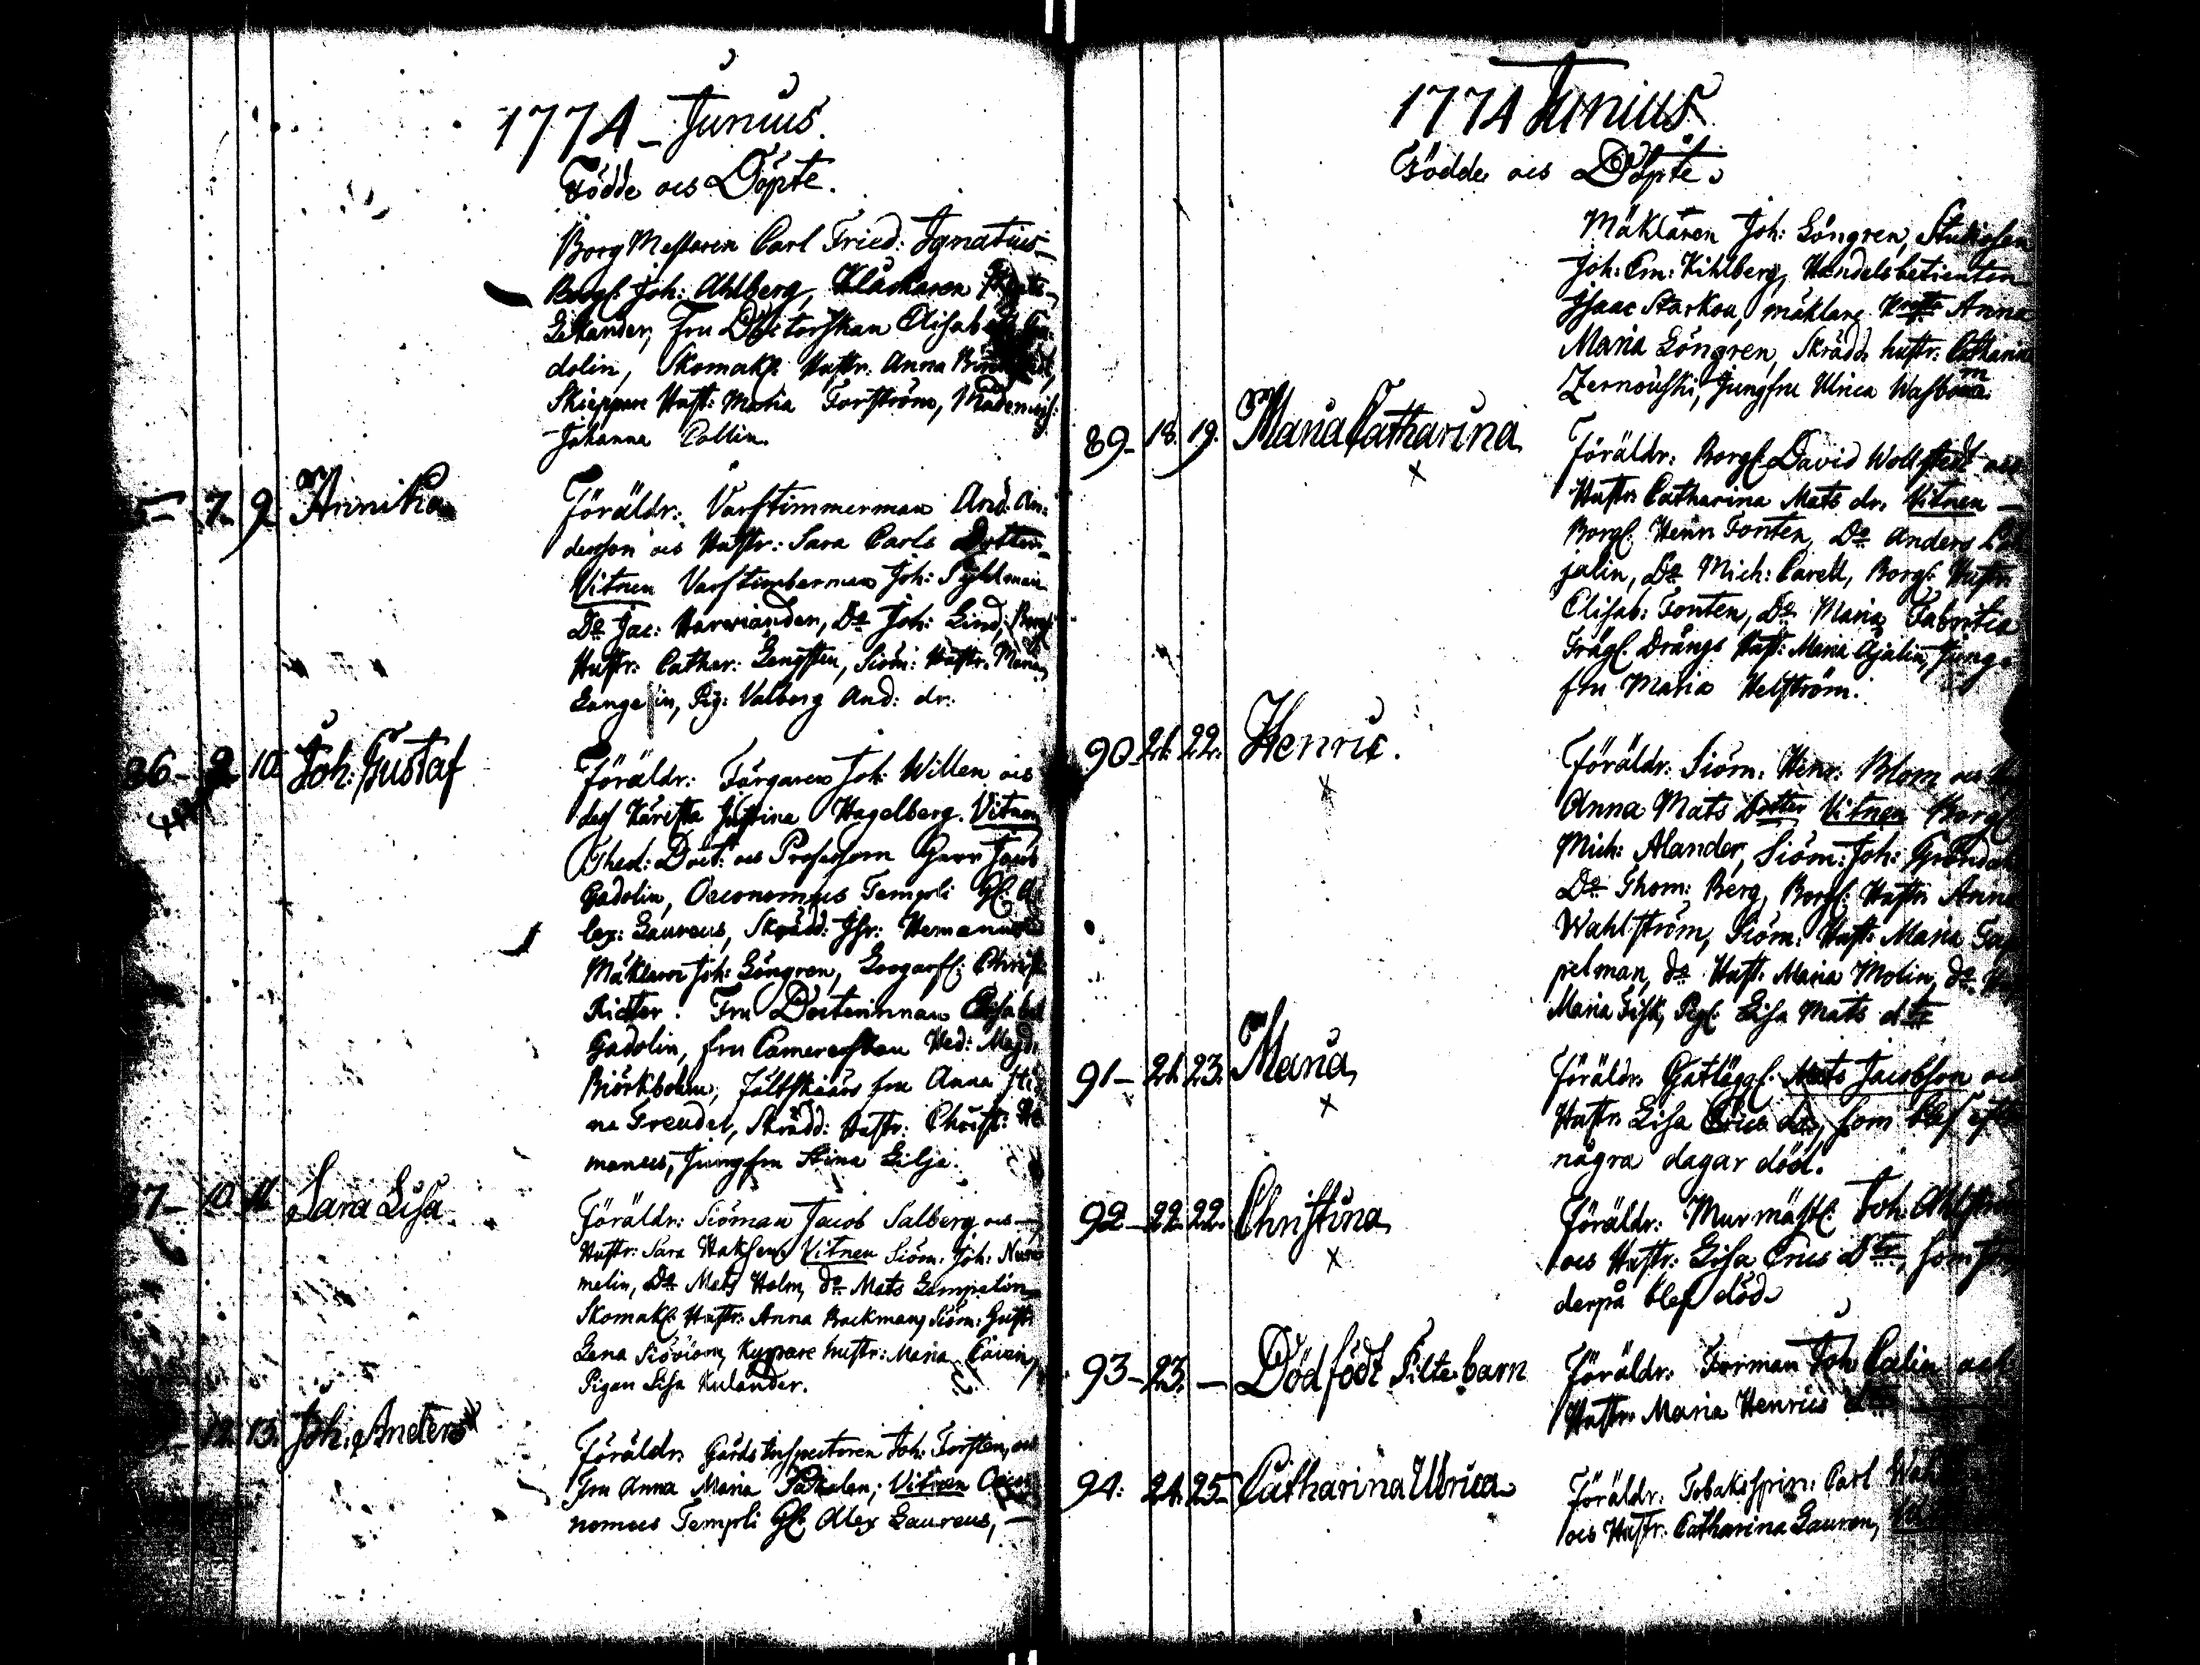 1774 - Junius.
Födde och Döpte.
Borg Mestaren Carl Fried: Ignatius
Borgl. Joh: Ahlberg, Klåckaren
Lekander, Fru Doctorskan Elisab: Ga-
dolin, Skomak. Hustr: Anna
Skieppare Hust: Maria Forsström, Mademois:
Johanna Collin.
5- 7. 9. Annika
Föräldr: Varftimmerman And: An-
dersson och Hustr: Sara Carls Dotter
Vitnen Varftimberman Joh: Sÿhlman
Do Jac: Harvianden, Do Joh: Lind, Borgl
Hustr: Cathar: Lengsten, Siöm: Hustr: Maria
Langelin, Pig: Valborg And: dr.
86- 9. 10. Joh: Gustaf
Föräldr: Färgaren Joh: Willen och
des Käresta Justina Hagelberg. Vitnen
Theol: Doct: och Professorn Herr Jacob
Gadolin, Oeconomus Templi Hl. A-
lex: Laureus, Skrädd: Isr: Hemanus
Mäklaren Joh: Löngren, Christ
Richter. Fru Doctorinnan Elisabet
Gadolin, fru Camererskan Hed: Magd:
Biörkbohm, Fältskiärs fru Anna Sti-
na Greudel, Skrädd: Hustr: Christ: He
manus, Jungfru Stina Lilja.
87- 10. 11. Sara Lisa
Föräldr: Siöman Jacob Salberg och
Hustr: Sara Vitnen Siöm: Joh: Num
melin, Do Mats Holm, do Mats Lempelin
Skomak: Hustr: Anna Backman, Siöm: Hustr
Lena Siöblom, Kypare hustr: Maria
Pigan Lisa Kulander.
12. 13. Joh: Anders
Föräldr: Gårds Inspectoren Joh: Forsten, och
Fru Anna Maria Vitnen Oeco
nomus Templi Hl. Alex Laureus,
1774 Junius
Födde och Döpte.
Mäklaren Joh: Löngren, Studiosen
Joh: Em: Kihlberg, Handelsbetienten
Isaac Starkou, mäklare Anna
Maria Löngren, Skrädd. hustr: Catharina
Zernouski, Jungfru Ulrica Wasbom
89- 18. 19. Maria Catharina
Föräldr: Borgl. David Wollstedt och
Hustr: Catharina Mats dr. Vitnen
Borgl. Henr Tonten, Do Anders
jalin, Do Mich: Carell, Borgl. Hustr
Elisab: Tonten, Do Maria Fabritia
Drängs Hust: Maria Ajalin, Jung-
fru Maria Helström.
90 21. 22. Henric.
Föräldr: Siöm: Henr: Blom och
Anna Mats Dotter Vitnen Borgl
Mich: Alander, Siöm: Joh: Gröndahl
Do Thom: Berg, Borgl: Hustr Anna
Wahlström, Siöm: Hust: Maria
pelman, do Hust: Maria Molin, do
Maria Fisk, Pig: Lisa Mats dtr
91- 21. 23. Maria
Föräldr: Gatlägg: Mats Jacobson och
Hustr: Lisa Erics dtr, som blef efter
några dagar död.
92- 22. 22. Christina
Föräldr: Murmäst: Joh: Ahlström
och Hustr: Lisa Erics Dtr, som
derpå blef död.
93- 23. - Dödfödt Pilte barn
Föräldr: Forman Joh Calin och
Hustr: Maria Henrics
94: 24. 25. Catharina Ulrica
Föräldr: Tobaksspin: Carl
och Hustr: Catharina Lauren,